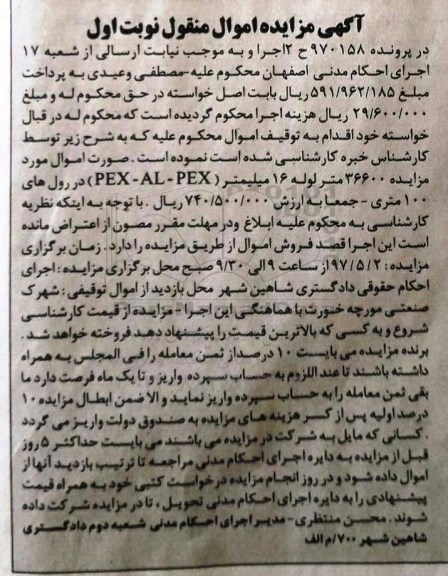 آگهی مزایده اموال منقول نوبت اول
در پرونده ۹۷۰۱۵۸ ح ۲اجرا و به موجب نیابت ارسالی از شعبه ۱۷
اجرای احکام مدنی اصفهان محکوم علیه-مصطفی وعیدی به پرداخت
مبلغ ۵۹۱/۹۶۲/۱۸۵ ریال بابت اصل خواسته در حق محکوم له و مبلغ
۲۹/۶۰۰/۰۰۰ ریال هزینه اجرا محکوم گردیده است که محکوم له در قبال
خواسته خود اقدام به توقیف اموال محکوم علیه که به شرح زیر توسط
کارشناس خبره کارشناسی شده است نموده است . صورت اموال مورد
مزایده ۳۶۶۰۰ متر لوله ۱۶ میلیمتر (PEX-AL-PEX) در رول های
۱۰۰ متری - جمعا به ارزش ۷۴۰/۵۰۰/۰۰۰ ریال . با توجه به اینکه نظریه
کارشناسی به محکوم علیه ابلاغ ودر مهلت مقرر مصون از اعتراض مانده
است این اجرا قصد فروش اموال از طریق مزایده را دارد . زمان برگزاری
مزایده : ۹۷/۵/۲ از ساعت ۹ الی ۹/۳۰ صبح محل برگزاری مزایده : اجرای
احکام حقوقی دادگستری شاهین شهر محل بازدید از اموال توقیفی : شهرک
صنعتی مورچه خورت با هماهنگی این اجرا - مزایده از قیمت کارشناسی
شروع و به کسی که بالاترین قیمت را پیشنهاد دهد فروخته خواهد شد .
برنده مزایده می بایست ۱۰ درصد از ثمن معامله را فی المجلس به همراه
داشته باشند تا عند اللزوم به حساب سپرده واریز و تا یک ماه فرصت دارد ما
بقی ثمن معامله را به حساب سپرده واریز نماید و الا ضمن ابطال مزایده ۱۰
درصد اولیه پس از کسر هزینه های مزایده به صندوق دولت واریز می گردد
. کسانی که مایل به شرکت در مزایده می باشند می بایست حداکثر ۵ روز
قبل از مزایده به دایره اجرای احکام مدنی مراجعه تا ترتیب بازدید آنها از
اموال داده شود و در روز انجام مزایده درخواست کتبی خود به همراه قیمت
پیشنهادی را به دایره اجرای احکام مدنی تحویل ، تا در مزایده شرکت داده
شوند . محسن منتظری - مدیر اجرای احکام مدنی شعبه دوم دادگستری
شاهین شهر ۷۰۰/م الف